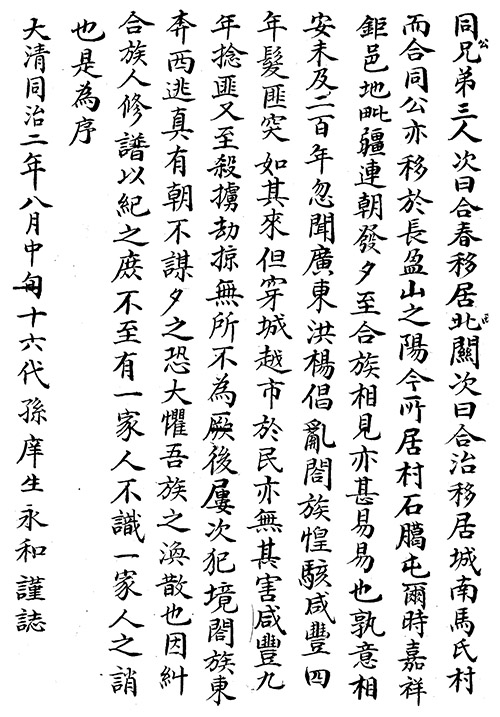 同公兄弟三人次曰合春移居北西關次曰合治移居城南馬氏村
而合同公亦移於長盈山之陽今所居村石臈屯爾時嘉祥
鉅邑地毗疆連朝發夕至合族相見亦甚易易也孰意相
安未及二百年忽聞廣東洪楊倡亂閤族惶駭咸豐四
年髮匪突如其來但穿城越市於民亦無其害咸豐九
年捻匪又至殺擄劫掠無所不為厥後屢次犯境閤族東
奔西逃真有朝不謀夕之恐大懼吾族之渙散也因糾
合族人修譜以紀之庶不至有一家人不識一家人之誚
也是為序
大清同治二年八月中旬十六代孫庠生永和謹誌